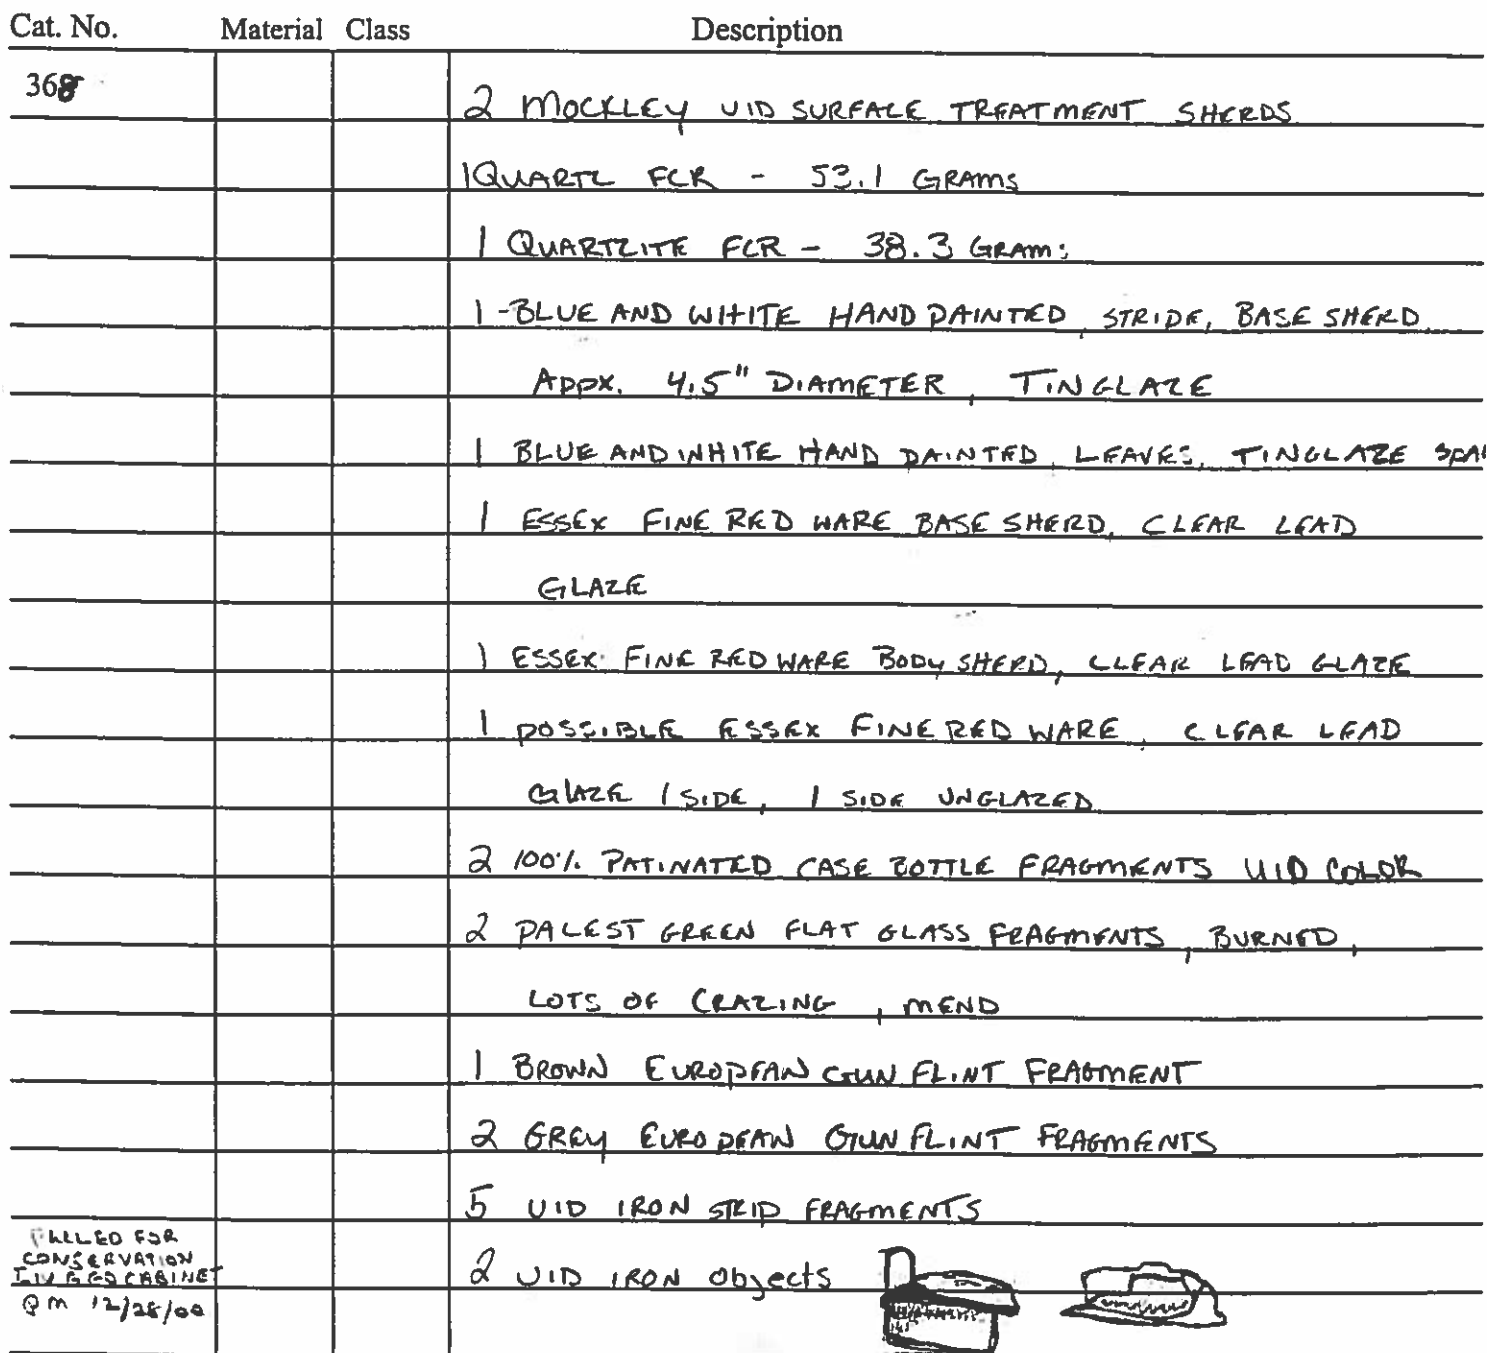 Cat. No. Material Class Description
368
2 MOCKLEY UID SURFACE TREATMENT SHERDS
1 QUARTZ FCR - 53.1 GRAMS
1 QUARTZITE FCR - 38.3 GRAMS
1 - BLUE AND WHITE HAND PAINTED, STRIPE, BASE SHERD
APPX. 4.5" DIAMETER, TINGLAZE
1 BLUE AND WHITE HAND PAINTED, LEAVES, TINGLAZE SPAL
1 ESSEX FINE RED WARE BASE SHERD, CLEAR LEAD
GLAZE
1 ESSEX FINE RED WARE BODY SHERD, CLEAR LEAD GLAZE
1 POSSIBLE ESSEX FINE RED WARE, CLEAR LEAD
GLAZE 1 SIDE, 1 SIDE UNGLAZED
2 100% PATINATED CASE BOTTLE FRAGMENTS UID COLOR
2 PALEST GREEN FLAT GLASS FRAGMENTS, BURNED,
LOTS OF CRAZING, MEND
1 BROWN EUROPEAN GUN FLINT FRAGMENT
2 GREY EUROPEAN GUN FLINT FRAGMENTS
5 UID IRON STRIP FRAGMENTS
PULLED FOR
CONSERVATION
CABINET
2 UID IRON Objects
12/28/00